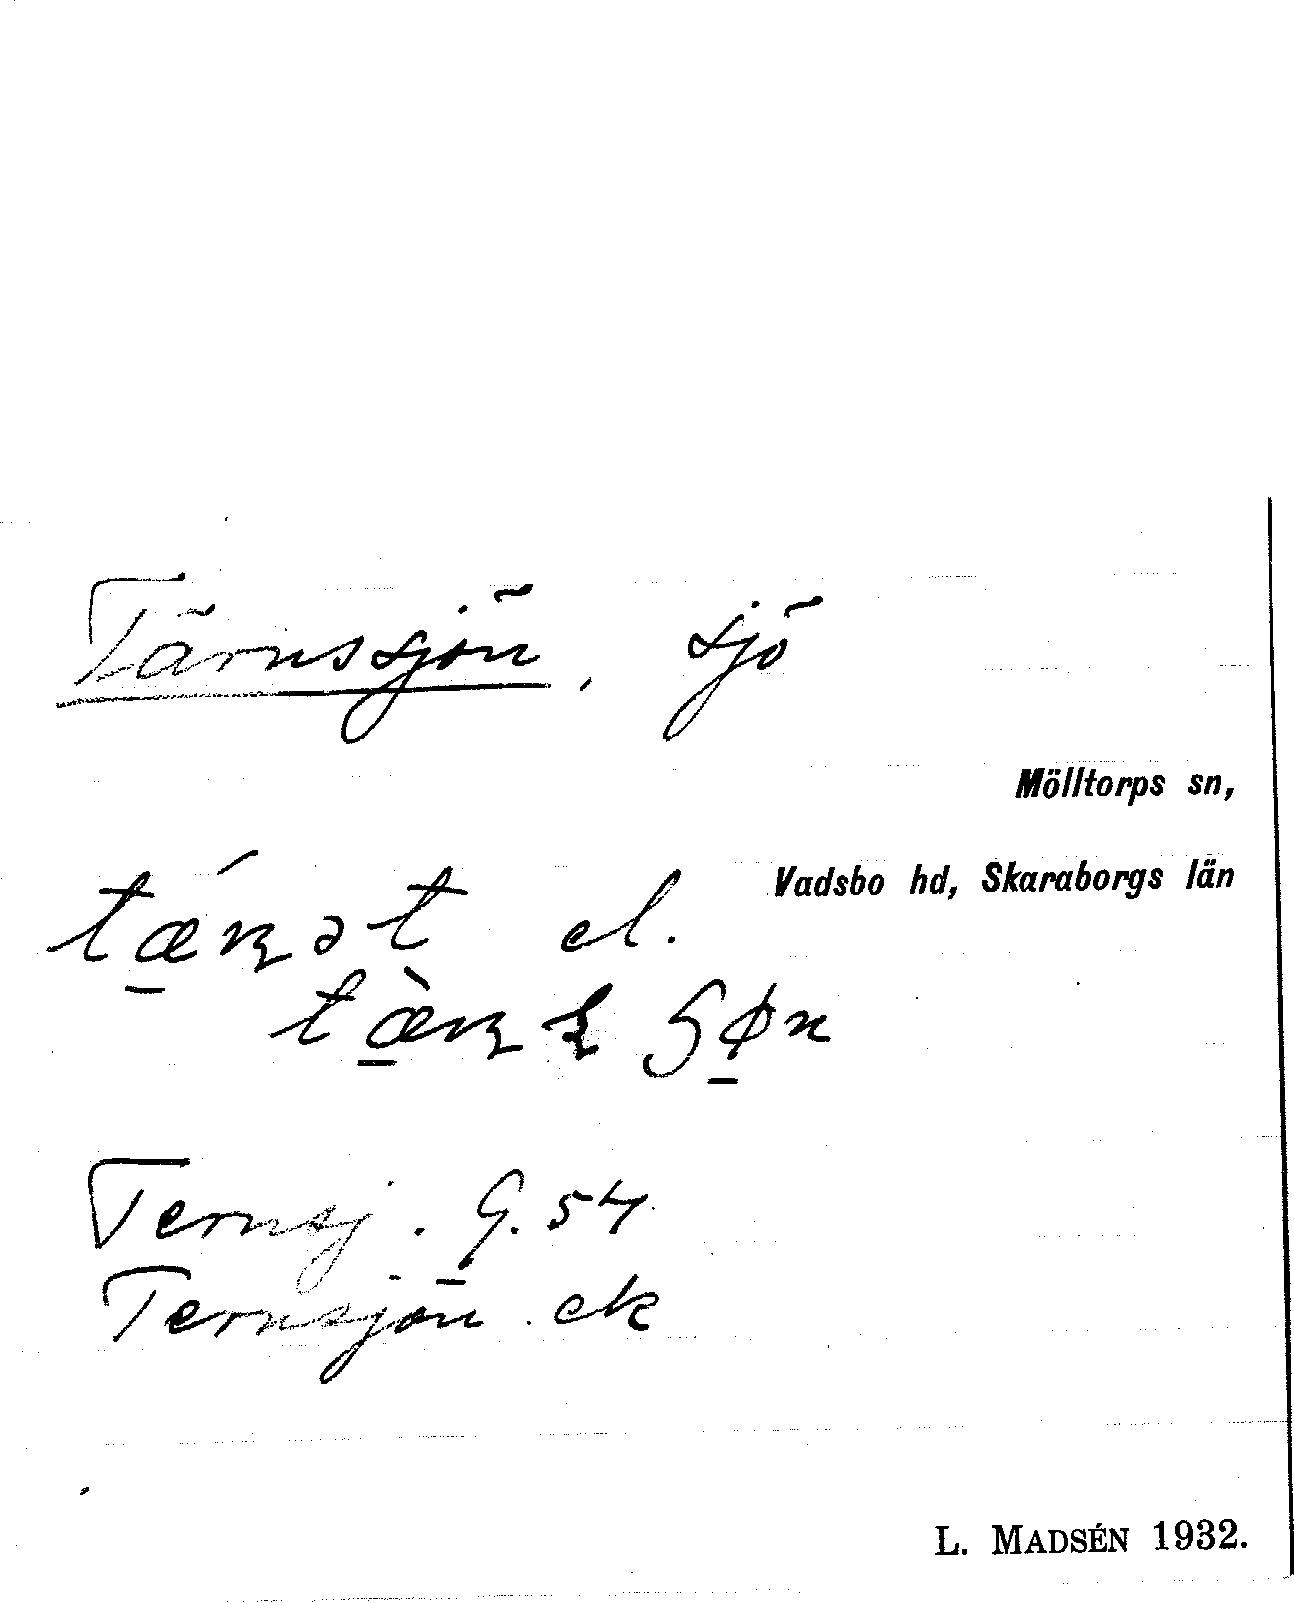 Tärnssjön, sjö
Mölltorps sn,
Vadsbo hd, Skaraborgs län
tǽɳət el.
tæ̀ɳʂ ʃøn
Ternsj. G. 54
Ternsjön ek
L. MADSÉN 1932.